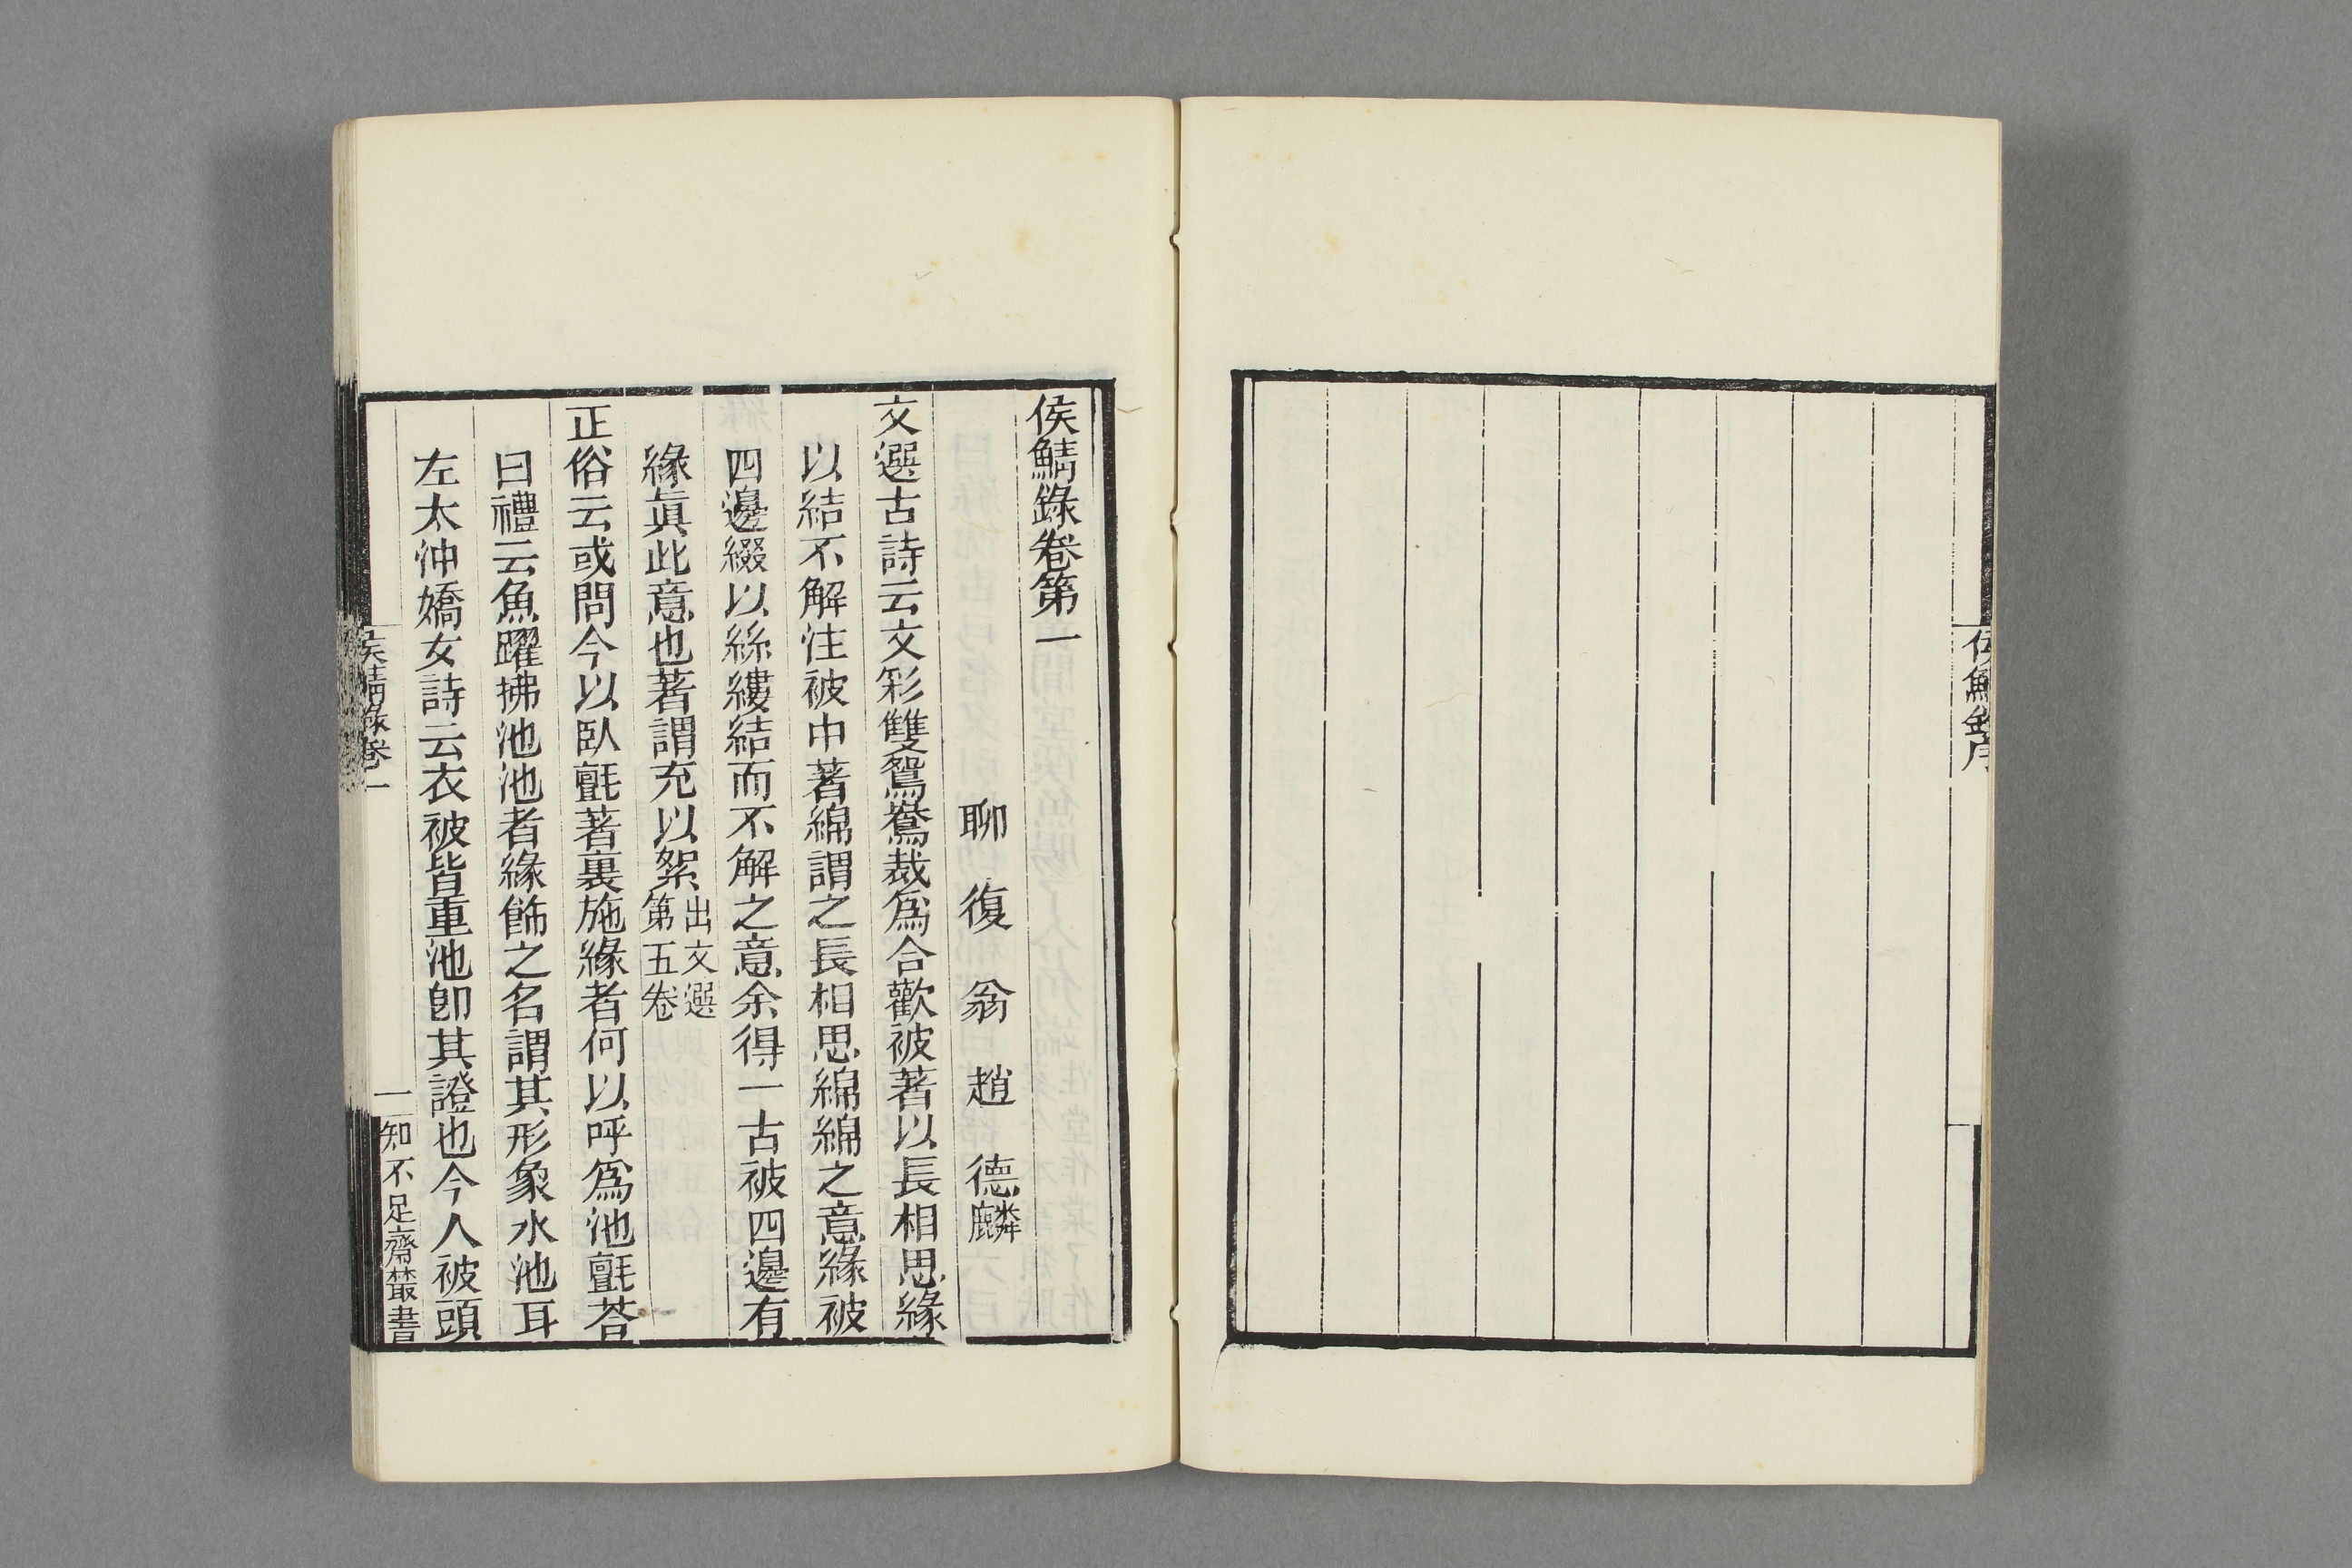 侯鯖錄序
侯鯖錄卷第一
聊復翁趙德麟
文選古詩云文彩雙鴛鴦裁爲合歡被著以長相思緣
以結不解注被中著綿謂之長相思綿綿之意緣被
四邊綴以絲縷結而不解之意余得一古被四邊有
緣眞此意也著謂充以絮出文選
第五卷
正俗云或問今以臥氊著裏施緣者何以呼爲池氊荅
曰禮云魚躍拂池池者緣飾之名謂其形象水池耳
左太沖嬌女詩云衣被皆重池卽其證也今人被頭
侯鯖錄卷一
一
知不足齋叢書